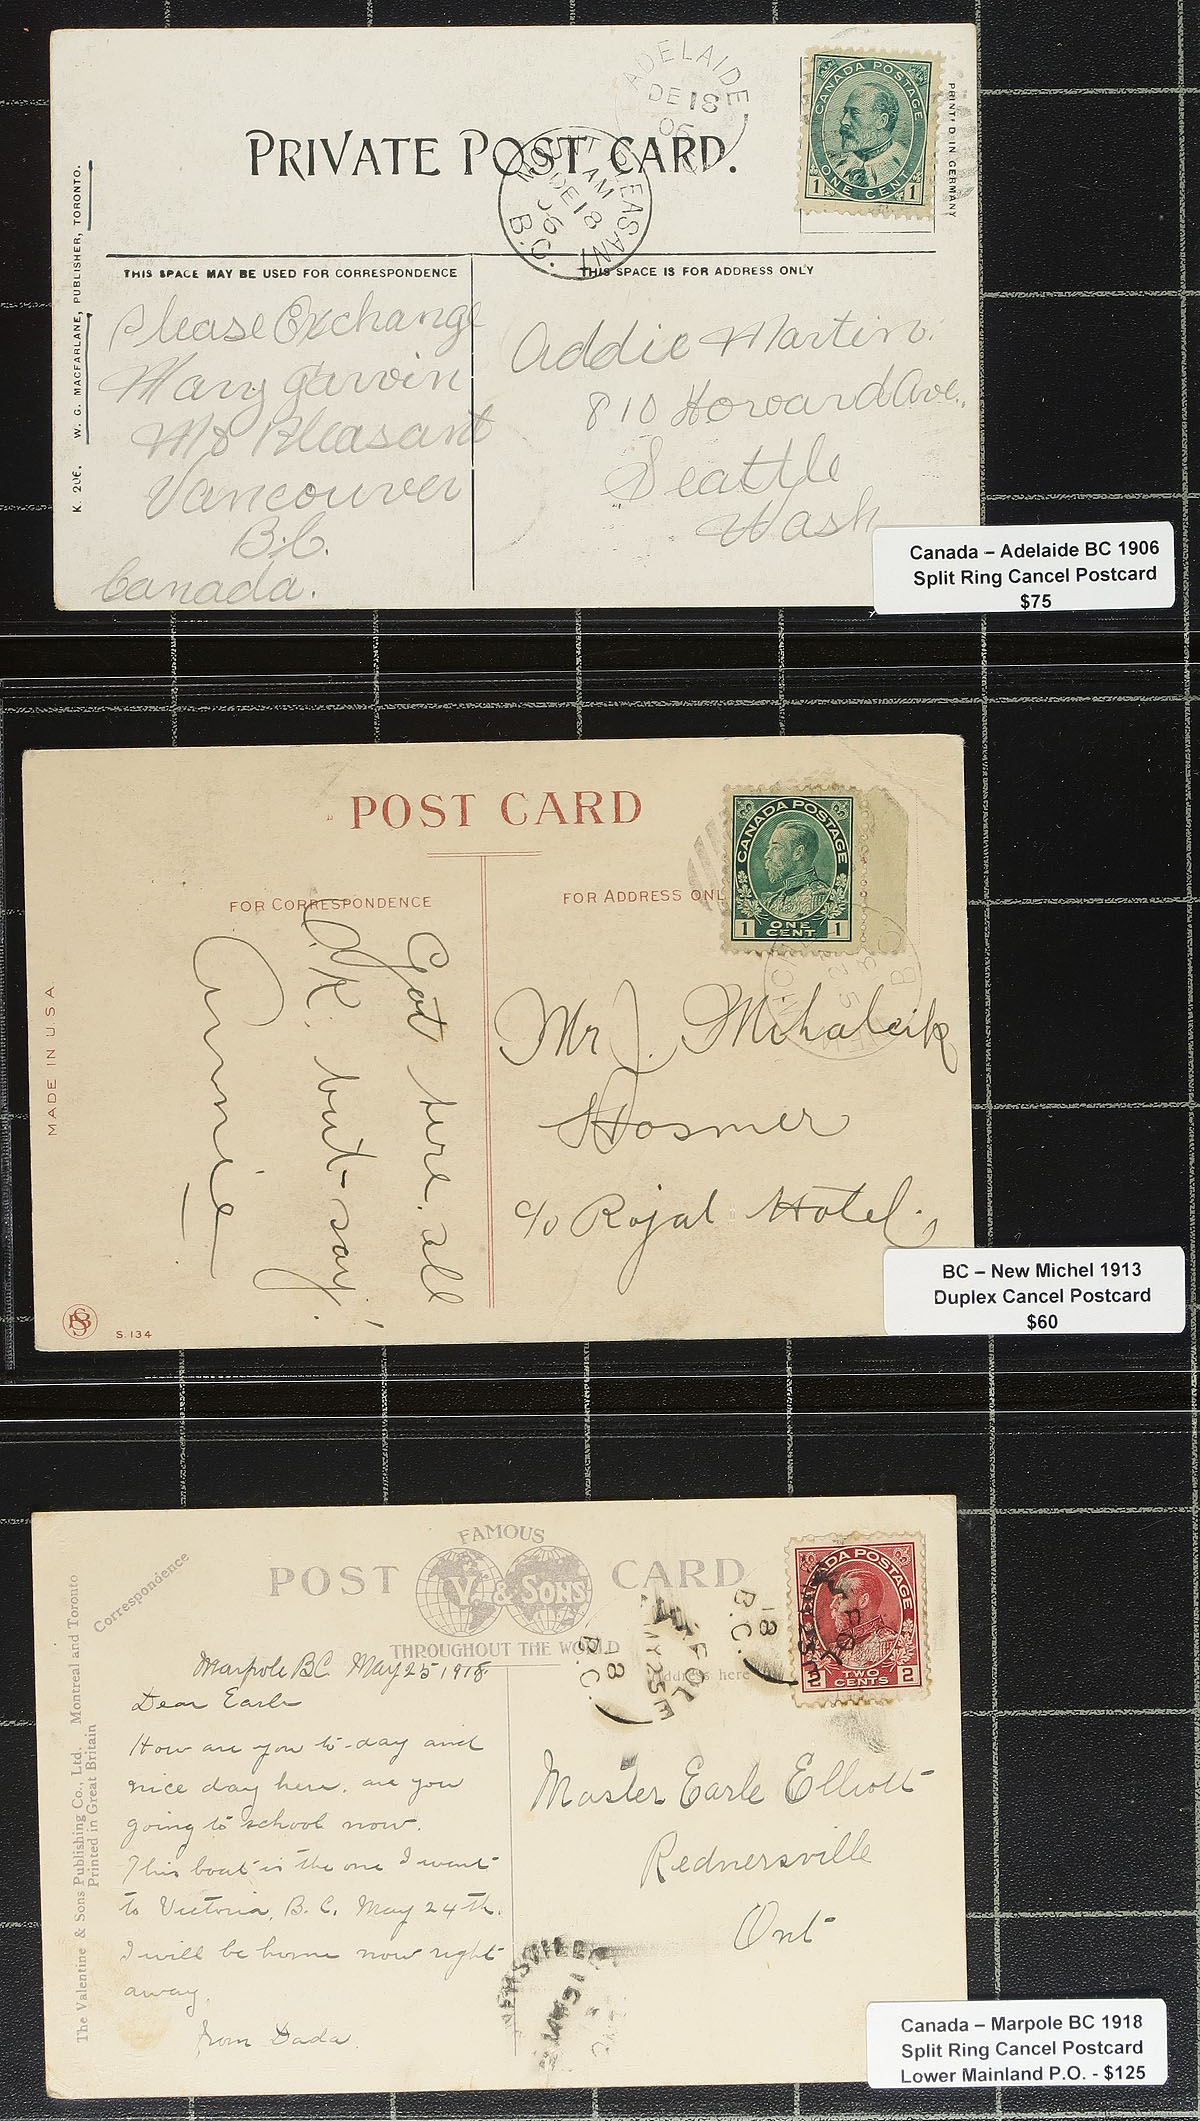 PRIVATE POST CARD.
ADELAIDE
DE 18
06
MOUNT PLEASANT
AM
DE 18
06
B.C.
CANADA POSTAGE
1 ONE CENT 1
PRINTED IN GERMANY
K. 206. W. G. MACFARLANE, PUBLISHER, TORONTO.
THIS SPACE MAY BE USED FOR CORRESPONDENCE
THIS SPACE IS FOR ADDRESS ONLY
Please Exchange
Mary Garvin
Mt Pleasant
Vancouver
B.C.
Canada.
Addie Martin.
810 Howard Ave.,
Seattle
Wash
Canada – Adelaide BC 1906
Split Ring Cancel Postcard
$75
POST CARD
CANADA POSTAGE
1 ONE CENT 1
FOR CORRESPONDENCE
FOR ADDRESS ONL
MADE IN U.S.A.
Got here, all
O.K. but-say!
Annie
Mr J. Mihalcik
Hosmer
c/o Royal Hotel.
S. 134
BC – New Michel 1913
Duplex Cancel Postcard
$60
FAMOUS
POST V. & SONS CARD
THROUGHOUT THE WORLD
CANADA POSTAGE
2 TWO CENTS 2
Correspondence
Address here
MY 25
18
B.C.
18
B.C.
The Valentine & Sons Publishing Co., Ltd. Montreal and Toronto
Printed in Great Britain
Marpole BC May 25 1918
Dear Earle
How are you to-day and
nice day here. are you
going to school now.
This boat is the one I went
to Victoria, B.C. May 24th.
I will be home now right
away.
from Dada.
Master Earle Elliott
Rednersville
Ont
Canada – Marpole BC 1918
Split Ring Cancel Postcard
Lower Mainland P.O. - $125